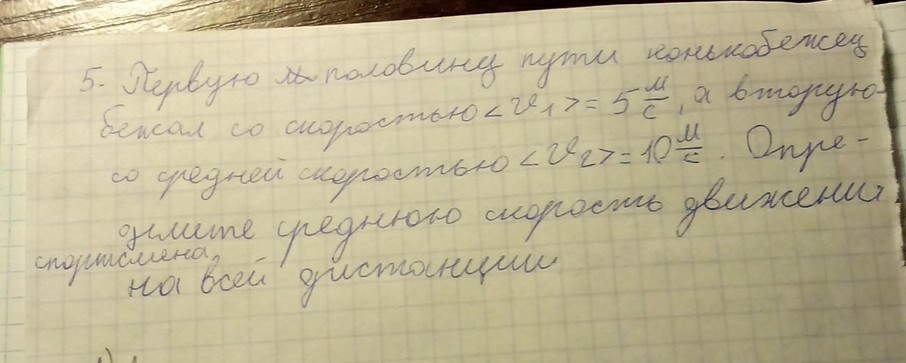 5. Первую половину пути конькобежец
бежал со скоростью <υ₁> = 5 м/с, а вторую
со средней скоростью <υ₂> = 10 м/с. Опре-
делите среднюю скорость движения
спортсмена
на всей дистанции